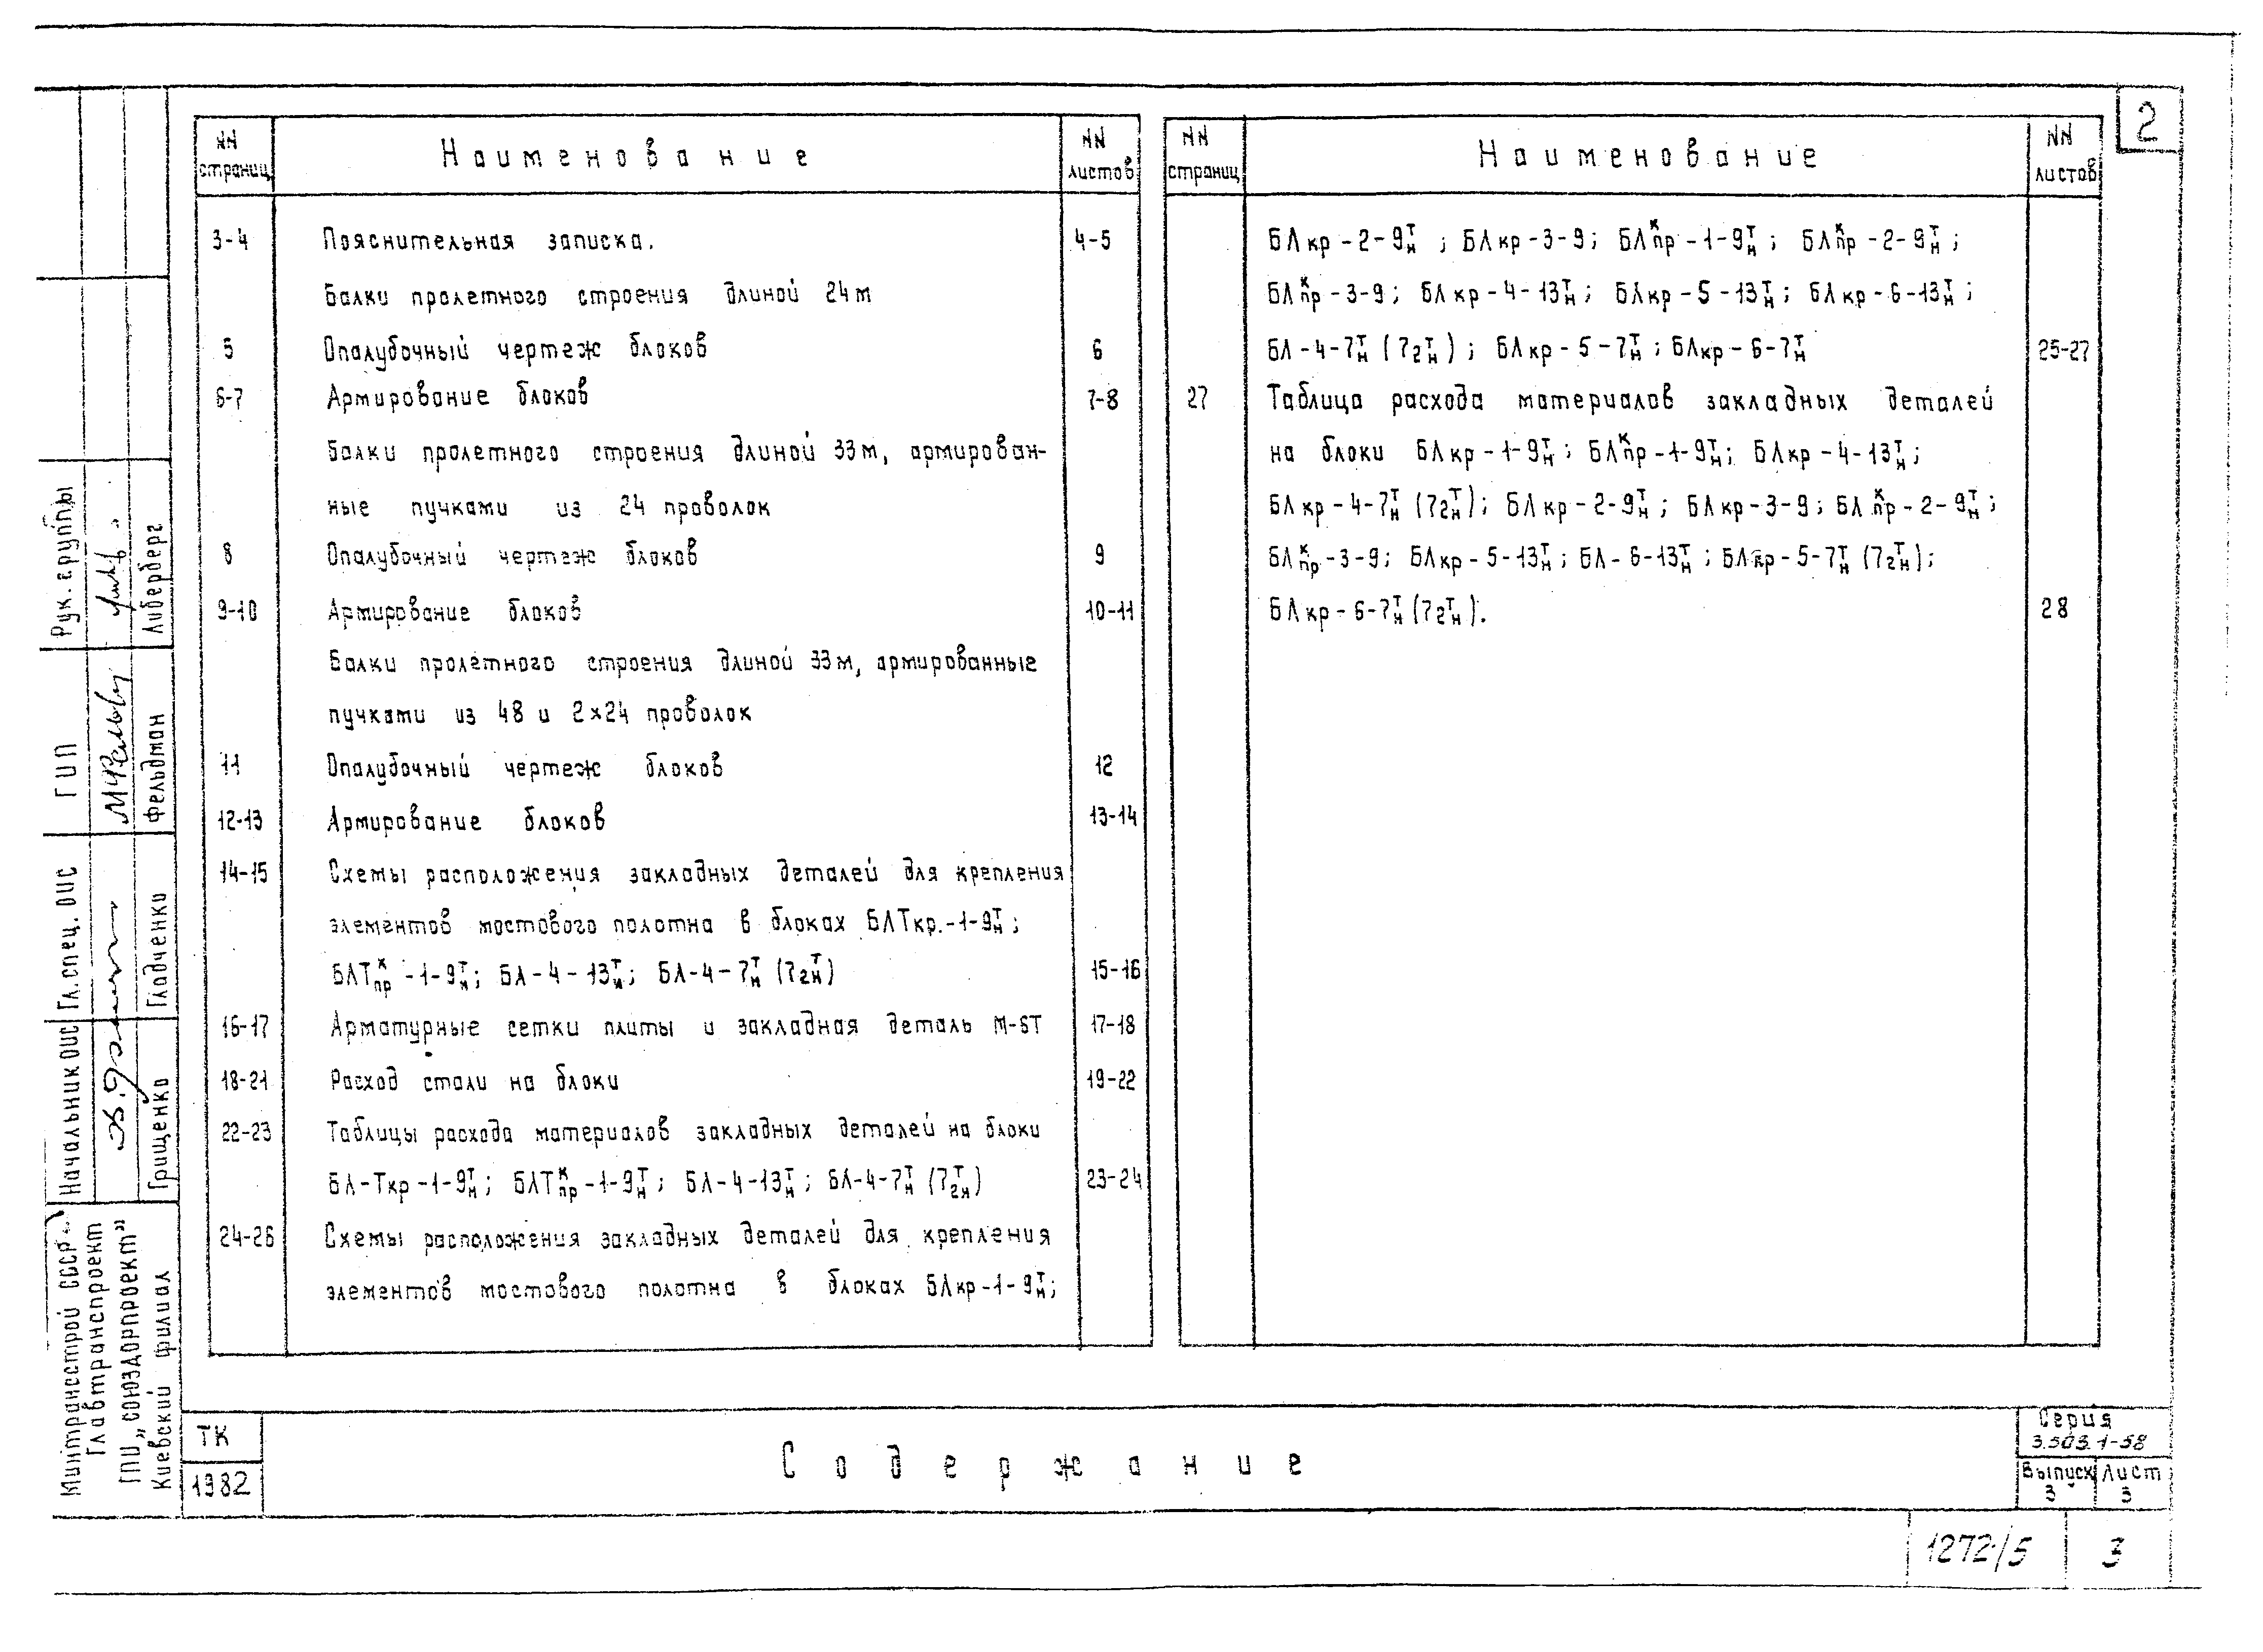 2
NN страниц Наименование NN листов
3-4 Пояснительная записка. 4-5
Балки пролетного строения длиной 24м
5 Опалубочный чертеж блоков 6
6-7 Армирование блоков 7-8
Балки пролетного строения длиной 33м, армирован-
ные пучками из 24 проволок
8 Опалубочный чертеж блоков 9
9-10 Армирование блоков 10-11
Балки пролетного строения длиной 33м, армированные
пучками из 48 и 2×24 проволок
11 Опалубочный чертеж блоков 12
12-13 Армирование блоков 13-14
14-15 Схемы расположения закладных деталей для крепления
элементов мостового полотна в блоках БЛТкр.-1-9Тн;
БЛТКпр-1-9Тн; БЛ-4-13Тн; БЛ-4-7Тн (72Тн) 15-16
16-17 Арматурные сетки плиты и закладная деталь М-6Т 17-18
18-21 Расход стали на блоки 19-22
22-23 Таблицы расхода материалов закладных деталей на блоки
БЛ-Ткр-1-9Тн; БЛТКпр-1-9Тн; БЛ-4-13Тн; БЛ-4-7Тн (7Т2н) 23-24
24-26 Схемы расположения закладных деталей для крепления
элементов мостового полотна в блоках БЛкр-1-9Тн;
NN страниц Наименование NN листов
БЛкр-2-9Тн; БЛкр-3-9; БЛКпр-1-9Тн; БЛКпр-2-9Тн;
БЛКпр-3-9; БЛкр-4-13Тн; БЛкр-5-13Тн; БЛкр-6-13Тн;
БЛ-4-7Тн (72Тн); БЛкр-5-7Тн; БЛкр-6-7Тн 25-27
27 Таблица расхода материалов закладных деталей
на блоки БЛкр-1-9Тн; БЛКпр-1-9Тн; БЛкр-4-13Тн;
БЛкр-4-7Тн (72Тн); БЛкр-2-9Тн; БЛкр-3-9; БЛКпр-2-9Тн;
БЛКпр-3-9; БЛкр-5-13Тн; БЛ-6-13Тн; БЛкр-5-7Тн (72Тн);
БЛкр-6-7Тн (72Тн). 28
Рук. группы Либерберг
ГИП Фельдман
Гл. спец. ОИС Гладченко
Начальник ОИС Грищенко
Минтрансстрой СССР
Главтранспроект
ГПИ „Союздорпроект"
Киевский филиал
ТК
1982
Содержание
Серия
3.503.1-58
Выпуск 3
Лист 3
1272/5 3